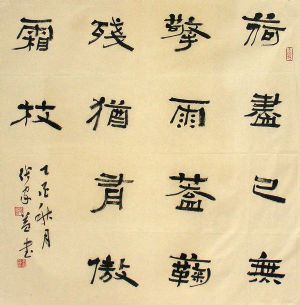 荷盡已無
擎雨蓋鞠
殘猶有傲
霜枝
乙酉秋月
書